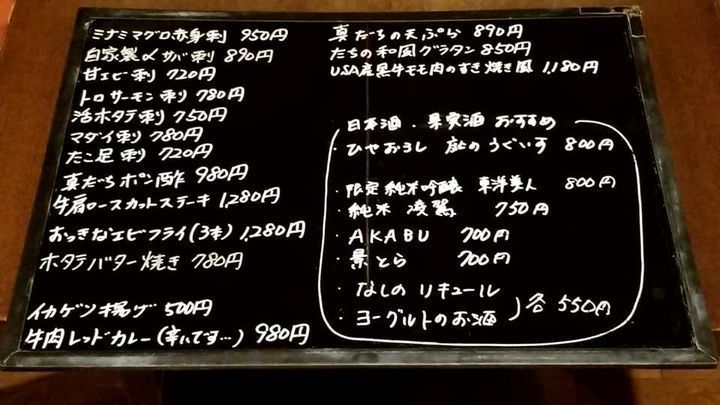 ミナミマグロ赤身刺 950円
自家製〆サバ刺 890円
甘エビ刺 720円
トロサーモン刺 780円
活ホタテ刺 750円
マダイ刺 780円
たこ足刺 720円
真だちポン酢 980円
牛肩ロースカットステーキ 1,280円
おっきなエビフライ(3本) 1,280円
ホタテバター焼き 780円
イカゲソ揚げ 500円
牛肉レッドカレー(辛いです…) 980円
真だちの天ぷら 890円
たちの和風グラタン 850円
USA産黒牛モモ肉のすき焼き風 1,180円
日本酒・果実酒 おすすめ
・ひやおろし 庭のうぐいす 800円
・限定純米吟醸 東洋美人 800円
・純米 凌駕 750円
・AKABU 700円
・景とら 700円
・なしのリキュール
・ヨーグルトのお酒 各550円